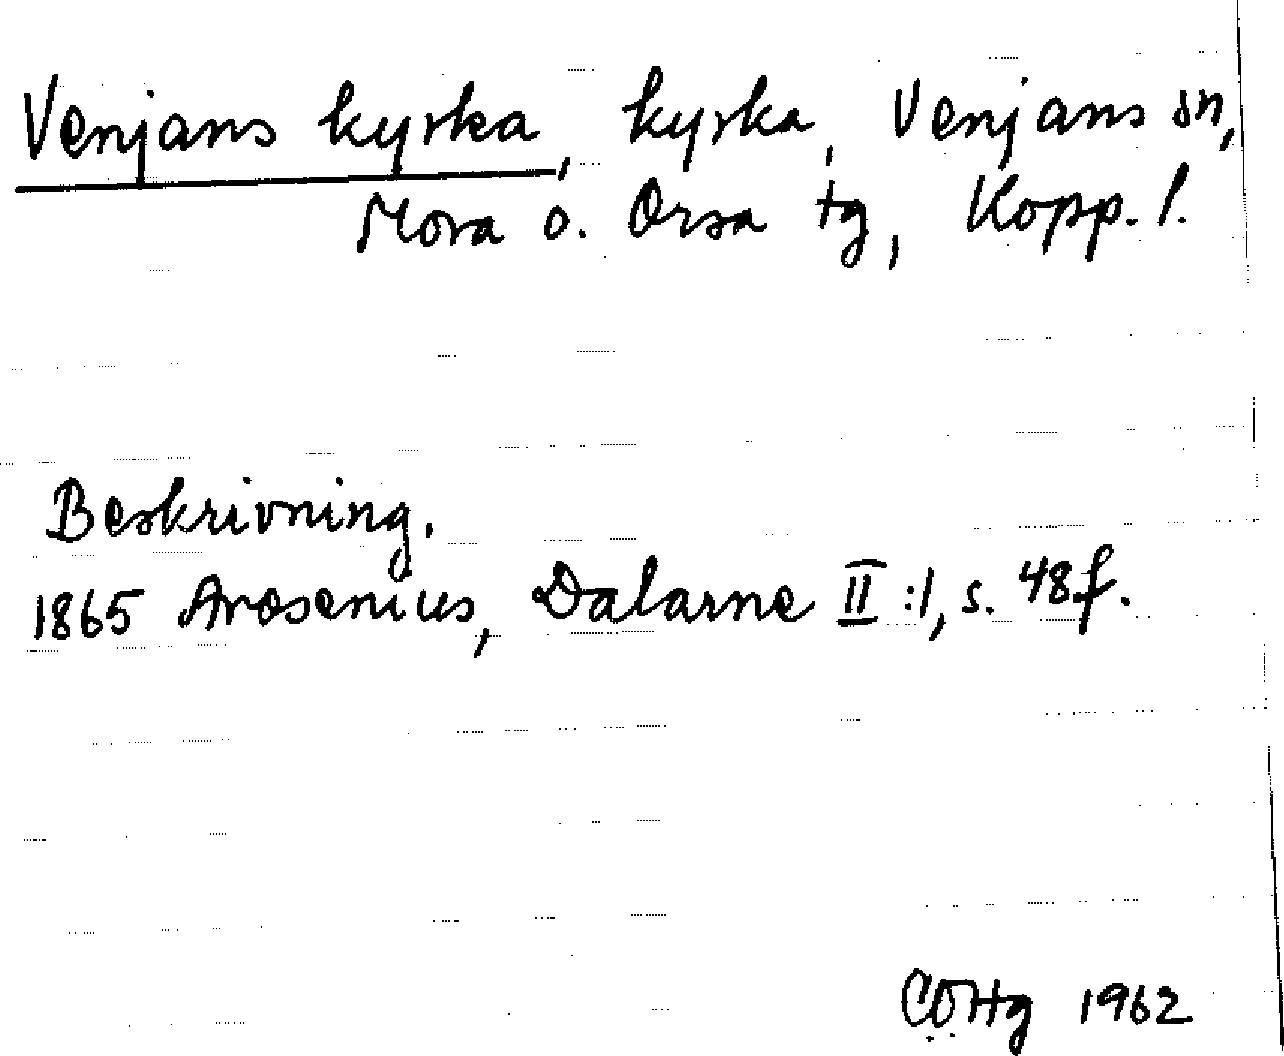 Venjans kyrka, kyrka, Venjans sn,
Mora o. Orsa tg, Kopp. l.
Beskrivning.
1865 Arosenius, Dalarne II:1, s. 48f.
1962